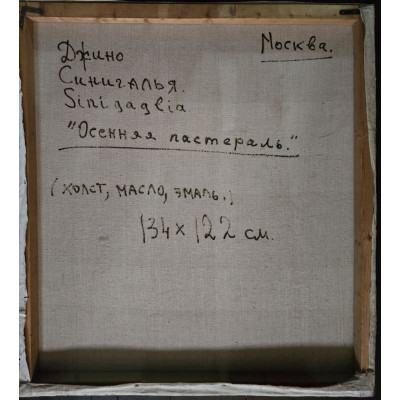 Джино
Москва.
Синигалья.
Sinigaglia
"Осенняя пастераль."
(холст, масло, эмаль.)
134x122 см.